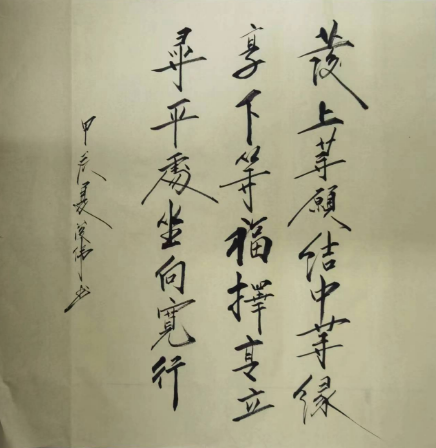 發上等願結中等緣
享下等福擇高立
尋平處坐向寬行
甲辰夏书